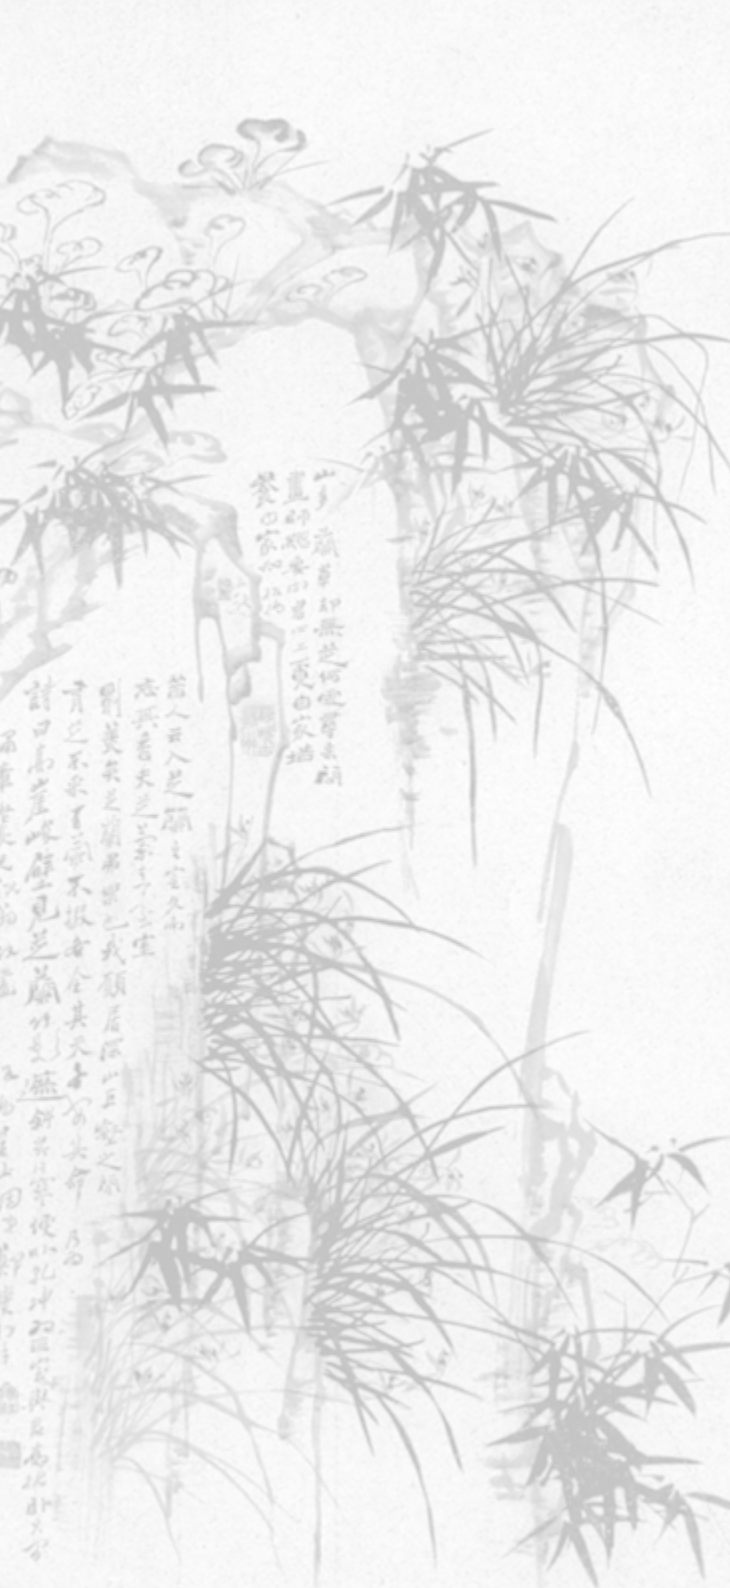 山多蘭草卻無芝何處尋來問
畫師總要向君心上覓自家培
養自家知 板橋
昔人云入芝蘭之室久而
忘其香夫芝蘭入室室
則美矣芝蘭弗樂也我願居深山巨壑之間
有芝不采有蘭不掇各全其天各安其命 乃為
詩曰高崖峻壁見芝蘭竹影遮斜幾片寒便以乾坤為巨室與君高枕臥其間